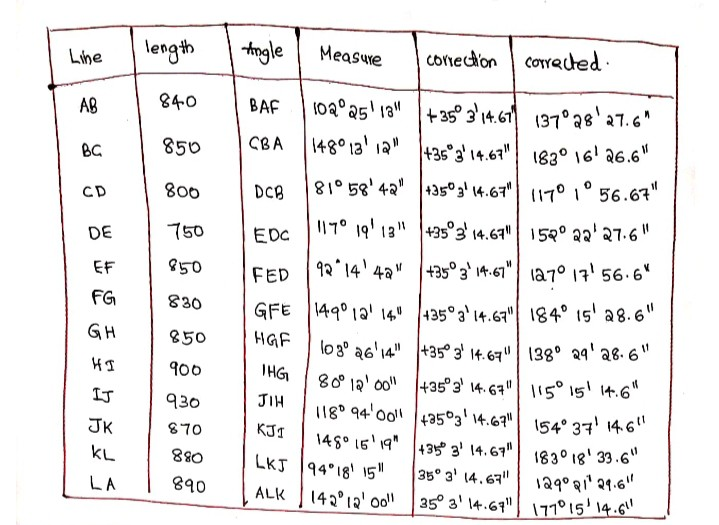 Line length Angle Measure correction corrected.
AB 840 BAF 102° 25' 13" +35° 3' 14.67" 137° 28' 27.6"
BC 850 CBA 148° 13' 12" +35° 3' 14.67" 183° 16' 26.6"
CD 800 DCB 81° 58' 42" +35° 3' 14.67" 117° 1° 56.67"
DE 750 EDC 117° 19' 13" +35° 3' 14.67" 152° 22' 27.6"
EF 850 FED 92° 14' 42" +35° 3' 14.67" 127° 17' 56.6"
FG 830 GFE 149° 12' 14" +35° 3' 14.67" 184° 15' 28.6"
GH 850 HGF 103° 26' 14" +35° 3' 14.67" 138° 29' 28.6"
HI 900 IHG 80° 12' 00" +35° 3' 14.67" 115° 15' 14.6"
IJ 930 JIH 118° 94' 00" +35° 3' 14.67" 154° 37' 14.6"
JK 870 KJI 148° 15' 19" +35° 3' 14.67" 183° 18' 33.6"
KL 880 LKJ 94° 18' 15" 35° 3' 14.67" 129° 21' 29.6"
LA 890 ALK 142° 12' 00" 35° 3' 14.67" 177° 15' 14.6"